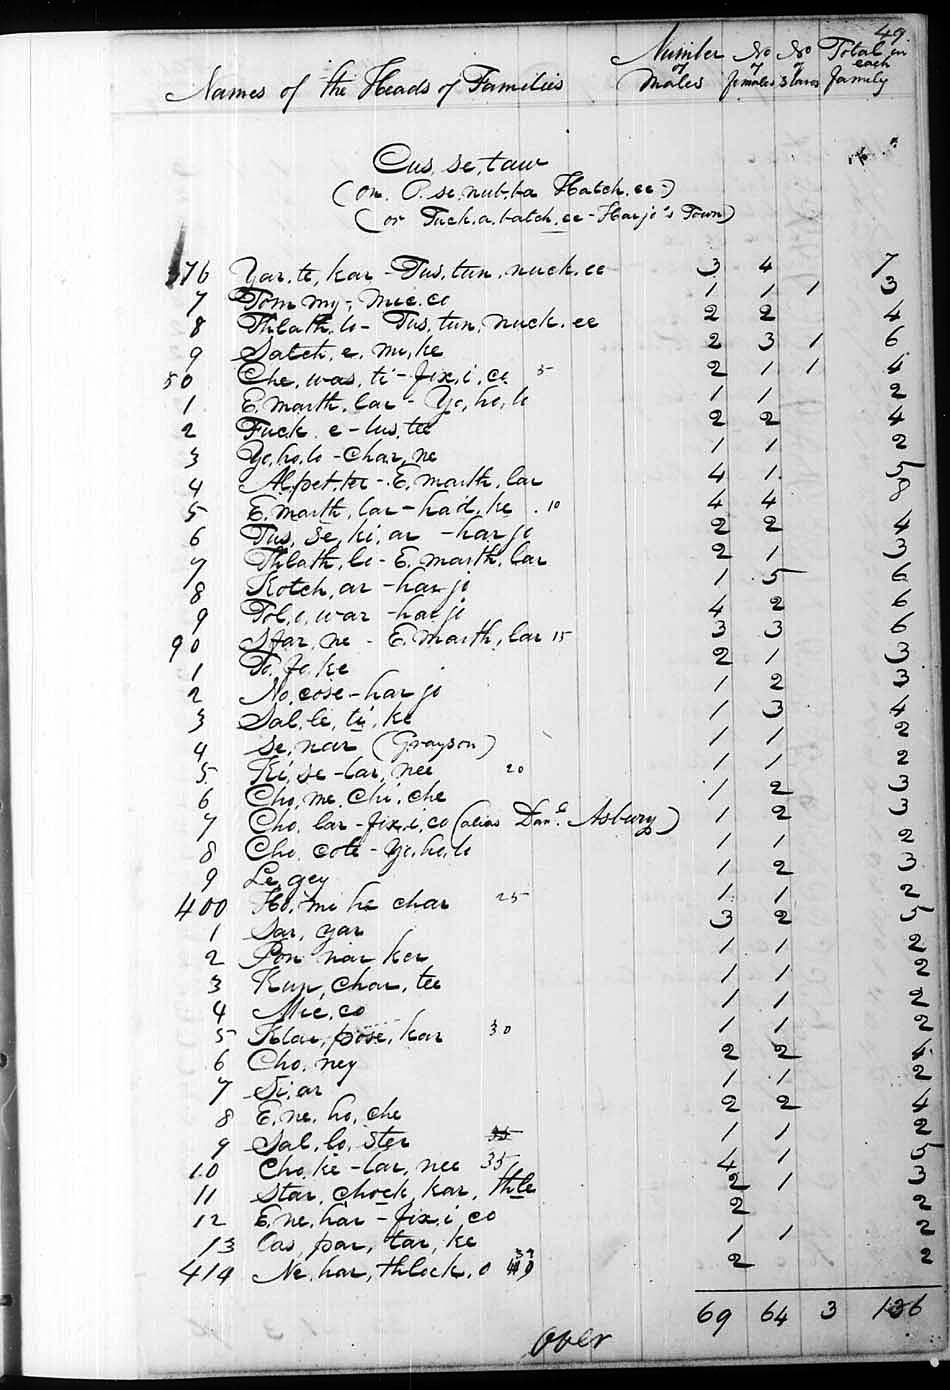 49.
Names of the Heads of Families Number of Males No of females No of Slaves Total in each family
Cus, se, taw
(on O. se. nub. ba Hatch. ee.)
(or Tuck. a. batch. ee - Harjo's Town)
376 Yar. te, kar - Tus, tun, nuck. ee 3 4 7
7 Tom my - Mic. co 1 1 1 3
8 Thlath. lo - Tus, tun, nuck. ee 2 2 4
9 Satch. e. mi, ke 2 3 1 6
80 Che, was, ti - fix, i, co 5 2 1 1 4
1 E. marth, lar - Yo, ho, lo 1 1 2
2 Fuck. e - lus, tee 2 2 4
3 Yo, ho, lo - Char, ne 1 1 2
4 Al, pet, ter - E. marth, lar 4 1 5
5 E. marth, lar - had, ke 10 4 4 8
6 Tus, se, ki, ar - harjo 2 2 4
7 Thlath, lo - E. marth, lar 2 1 3
8 Kotch, ar - harjo 1 5 6
9 Tol, o, war - harjo 4 2 6
90 Spar, ne - E. marth, lar 15 3 3 6
1 To. fo. ke 2 1 3
2 No, cose - harjo 1 2 3
3 Sal, le, ti, ke 1 3 4
4 Se, nar (Grayson) 1 1 2
5 Ki, se - lar, nee 20 1 1 2
6 Cho, me, chi, che 1 2 3
7 Cho, lar - fix, i, co (alias Danl. Asbury) 1 2 3
8 Cho, cote - Yo, ho, lo 1 1 2
9 Le, gey 1 2 3
400 Ho, mi he char 25 1 1 2
1 Sar, yar 3 2 5
2 Pon nar ker 1 1 2
3 Kup, char, tee 1 1 2
4 Mic, co 1 1 2
5 Klar, pose, kar 30 1 1 2
6 Cho, ney 2 2 4
7 Si, ar 1 1 2
8 E. ne, ho, che 2 2 4
9 Sal, lo, ster 35 1 1 2
10 Cho, ke - lar, nee 35 4 1 5
11 Star, chock, kar, thle 2 1 3
12 E. ne. har - fix, i, co 2 2
13 Cas, par, tar, ke 1 1 2
414 Ne, har, thlock, o 39 2 2
69 64 3 136
over